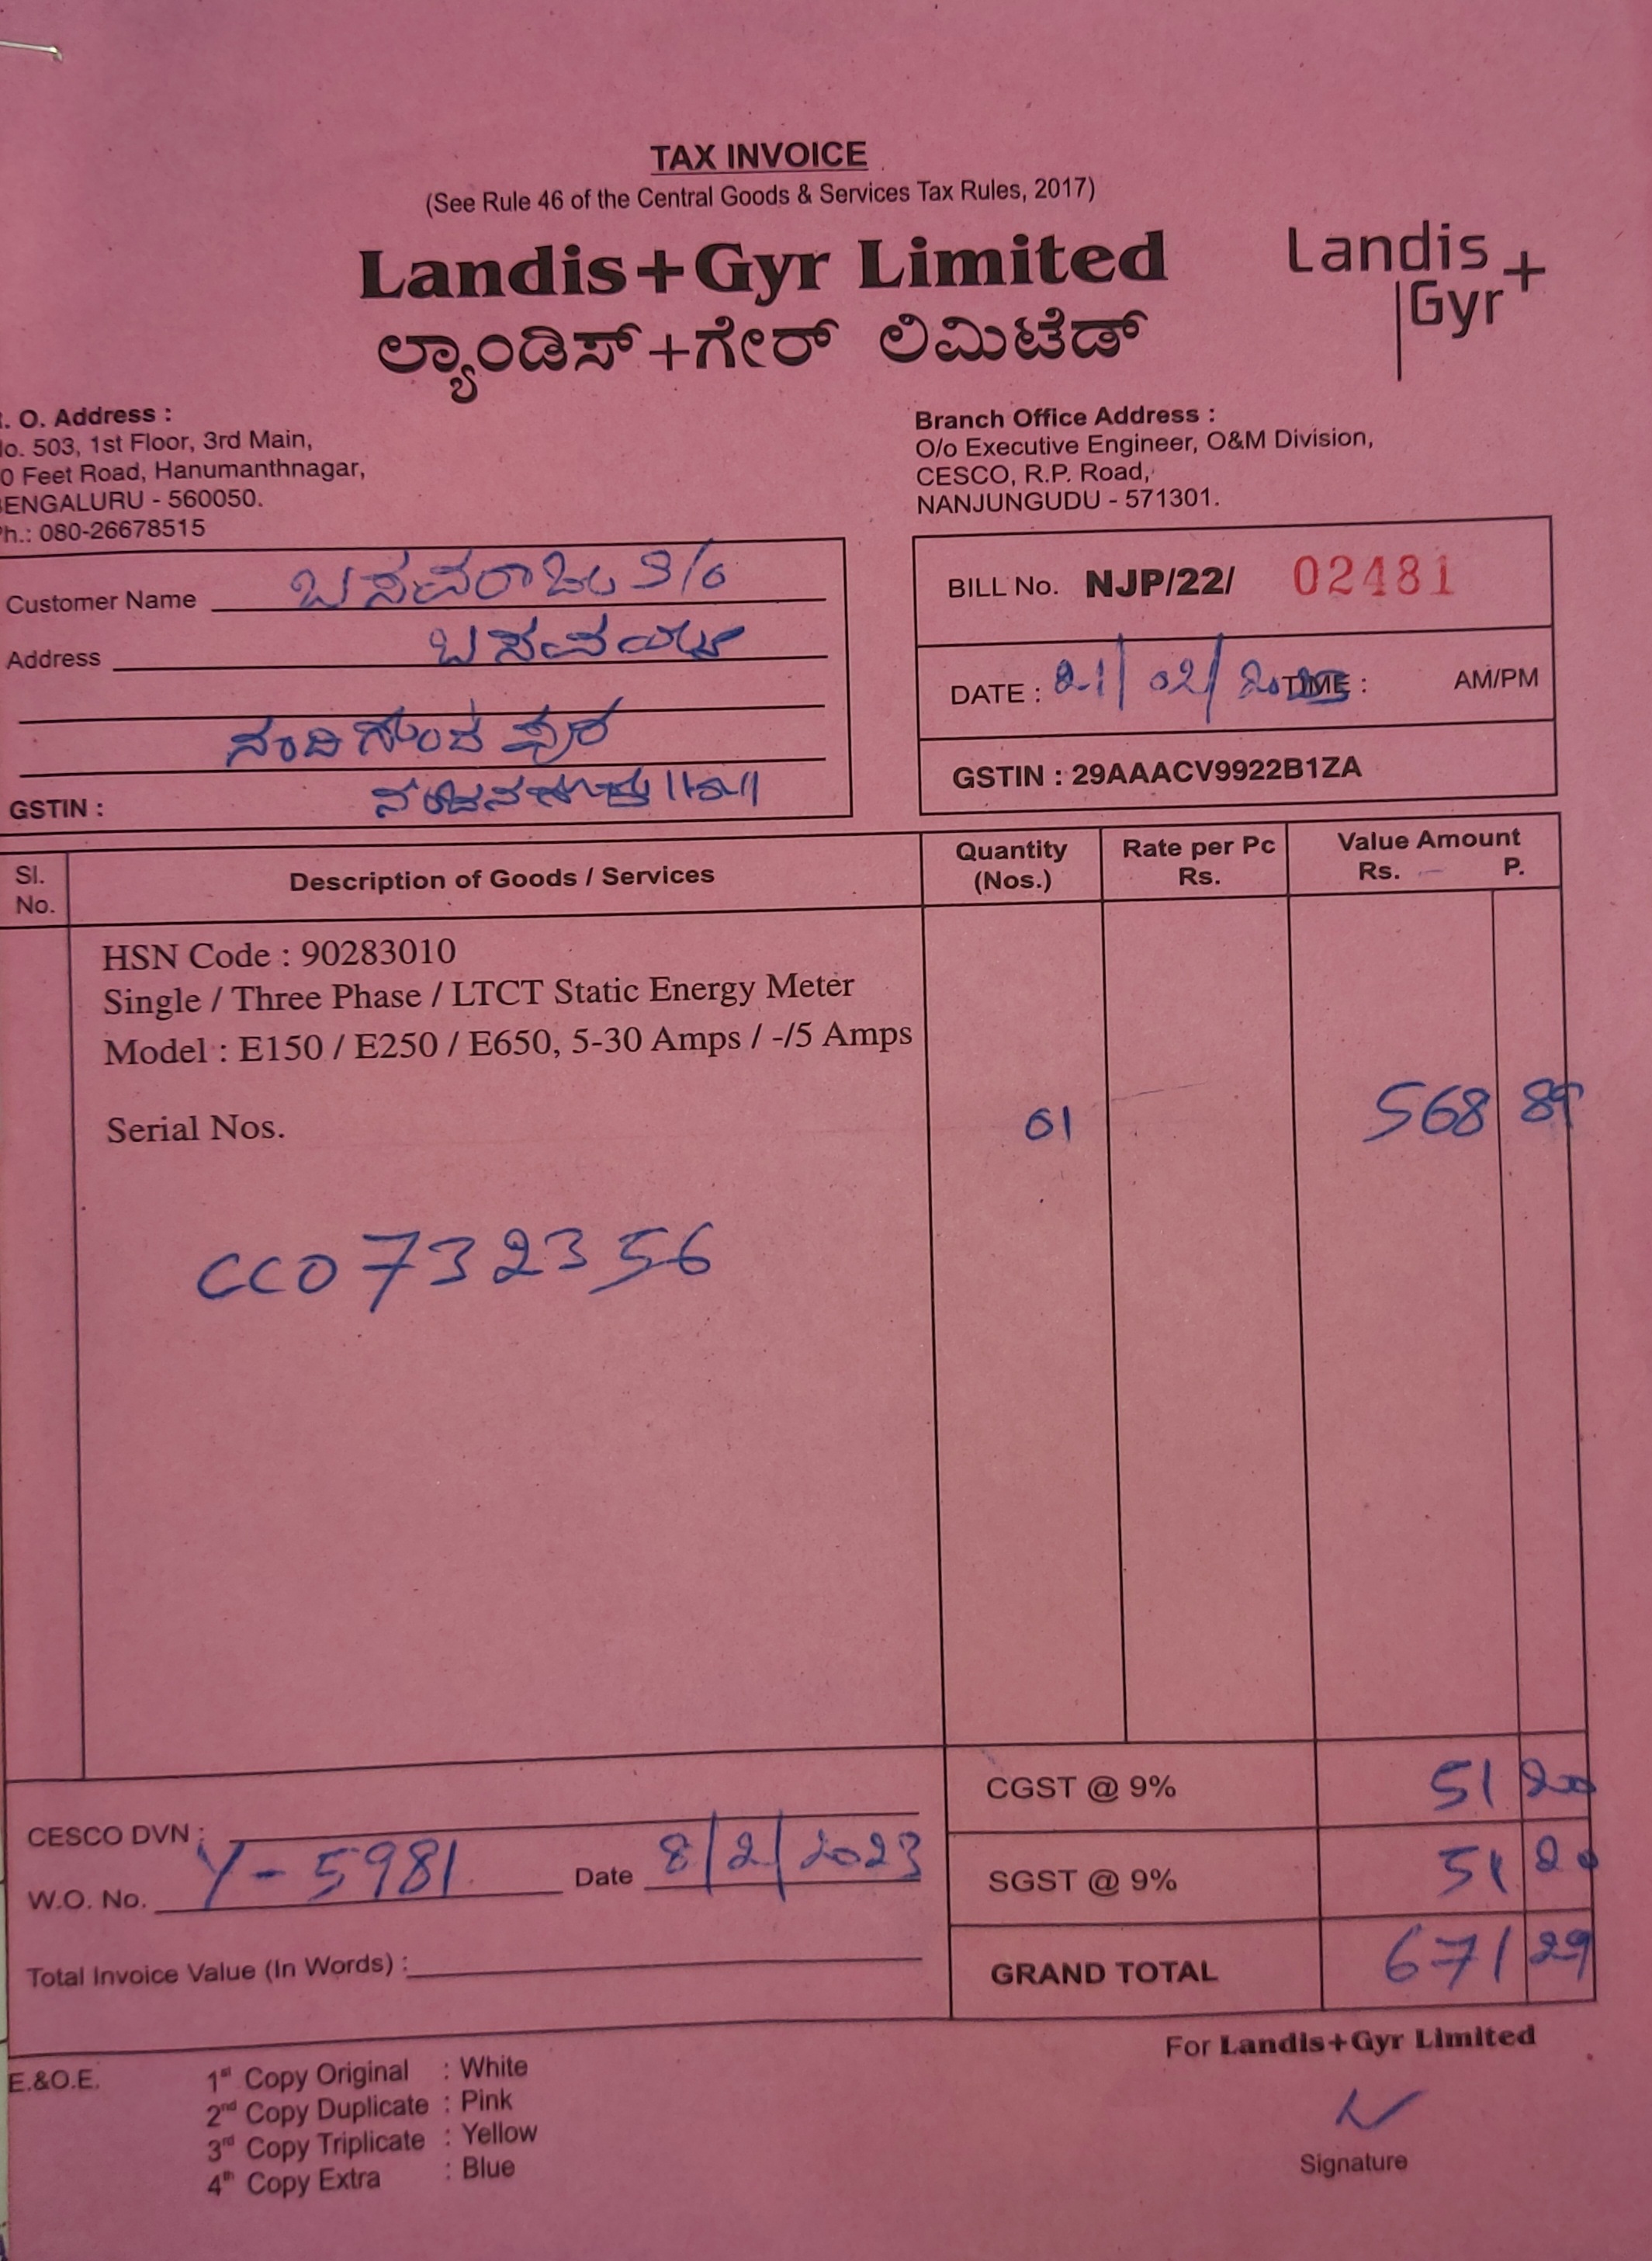 TAX INVOICE
(See Rule 46 of the Central Goods & Services Tax Rules, 2017)
Landis+Gyr Limited
ಲ್ಯಾಂಡಿಸ್+ಗೇರ್ ಲಿಮಿಟೆಡ್
Landis
Gyr+
. O. Address :
o. 503, 1st Floor, 3rd Main,
0 Feet Road, Hanumanthnagar,
ENGALURU - 560050.
h.: 080-26678515
Branch Office Address :
O/o Executive Engineer, O&M Division,
CESCO, R.P. Road,
NANJUNGUDU - 571301.
Customer Name ಬಸವರಾಜು S/o
Address ಬಸವಯ್ಯ
GSTIN :
BILL No. NJP/22/ 02481
DATE : 21/02/2023 TIME : AM/PM
GSTIN : 29AAACV9922B1ZA
Sl. No. Description of Goods / Services Quantity (Nos.) Rate per Pc Rs. Value Amount Rs. P.
HSN Code : 90283010
Single / Three Phase / LTCT Static Energy Meter
Model : E150 / E250 / E650, 5-30 Amps / -/5 Amps
Serial Nos. 01 568 89
CC0732356
CGST @ 9% 51 20
CESCO DVN :
W.O. No. Y-5981 Date 8/2/2023
SGST @ 9% 51 20
Total Invoice Value (In Words) :
GRAND TOTAL 671 29
For Landis+Gyr Limited
E.&O.E.
1st Copy Original : White
2nd Copy Duplicate : Pink
3rd Copy Triplicate : Yellow
4th Copy Extra : Blue
Signature